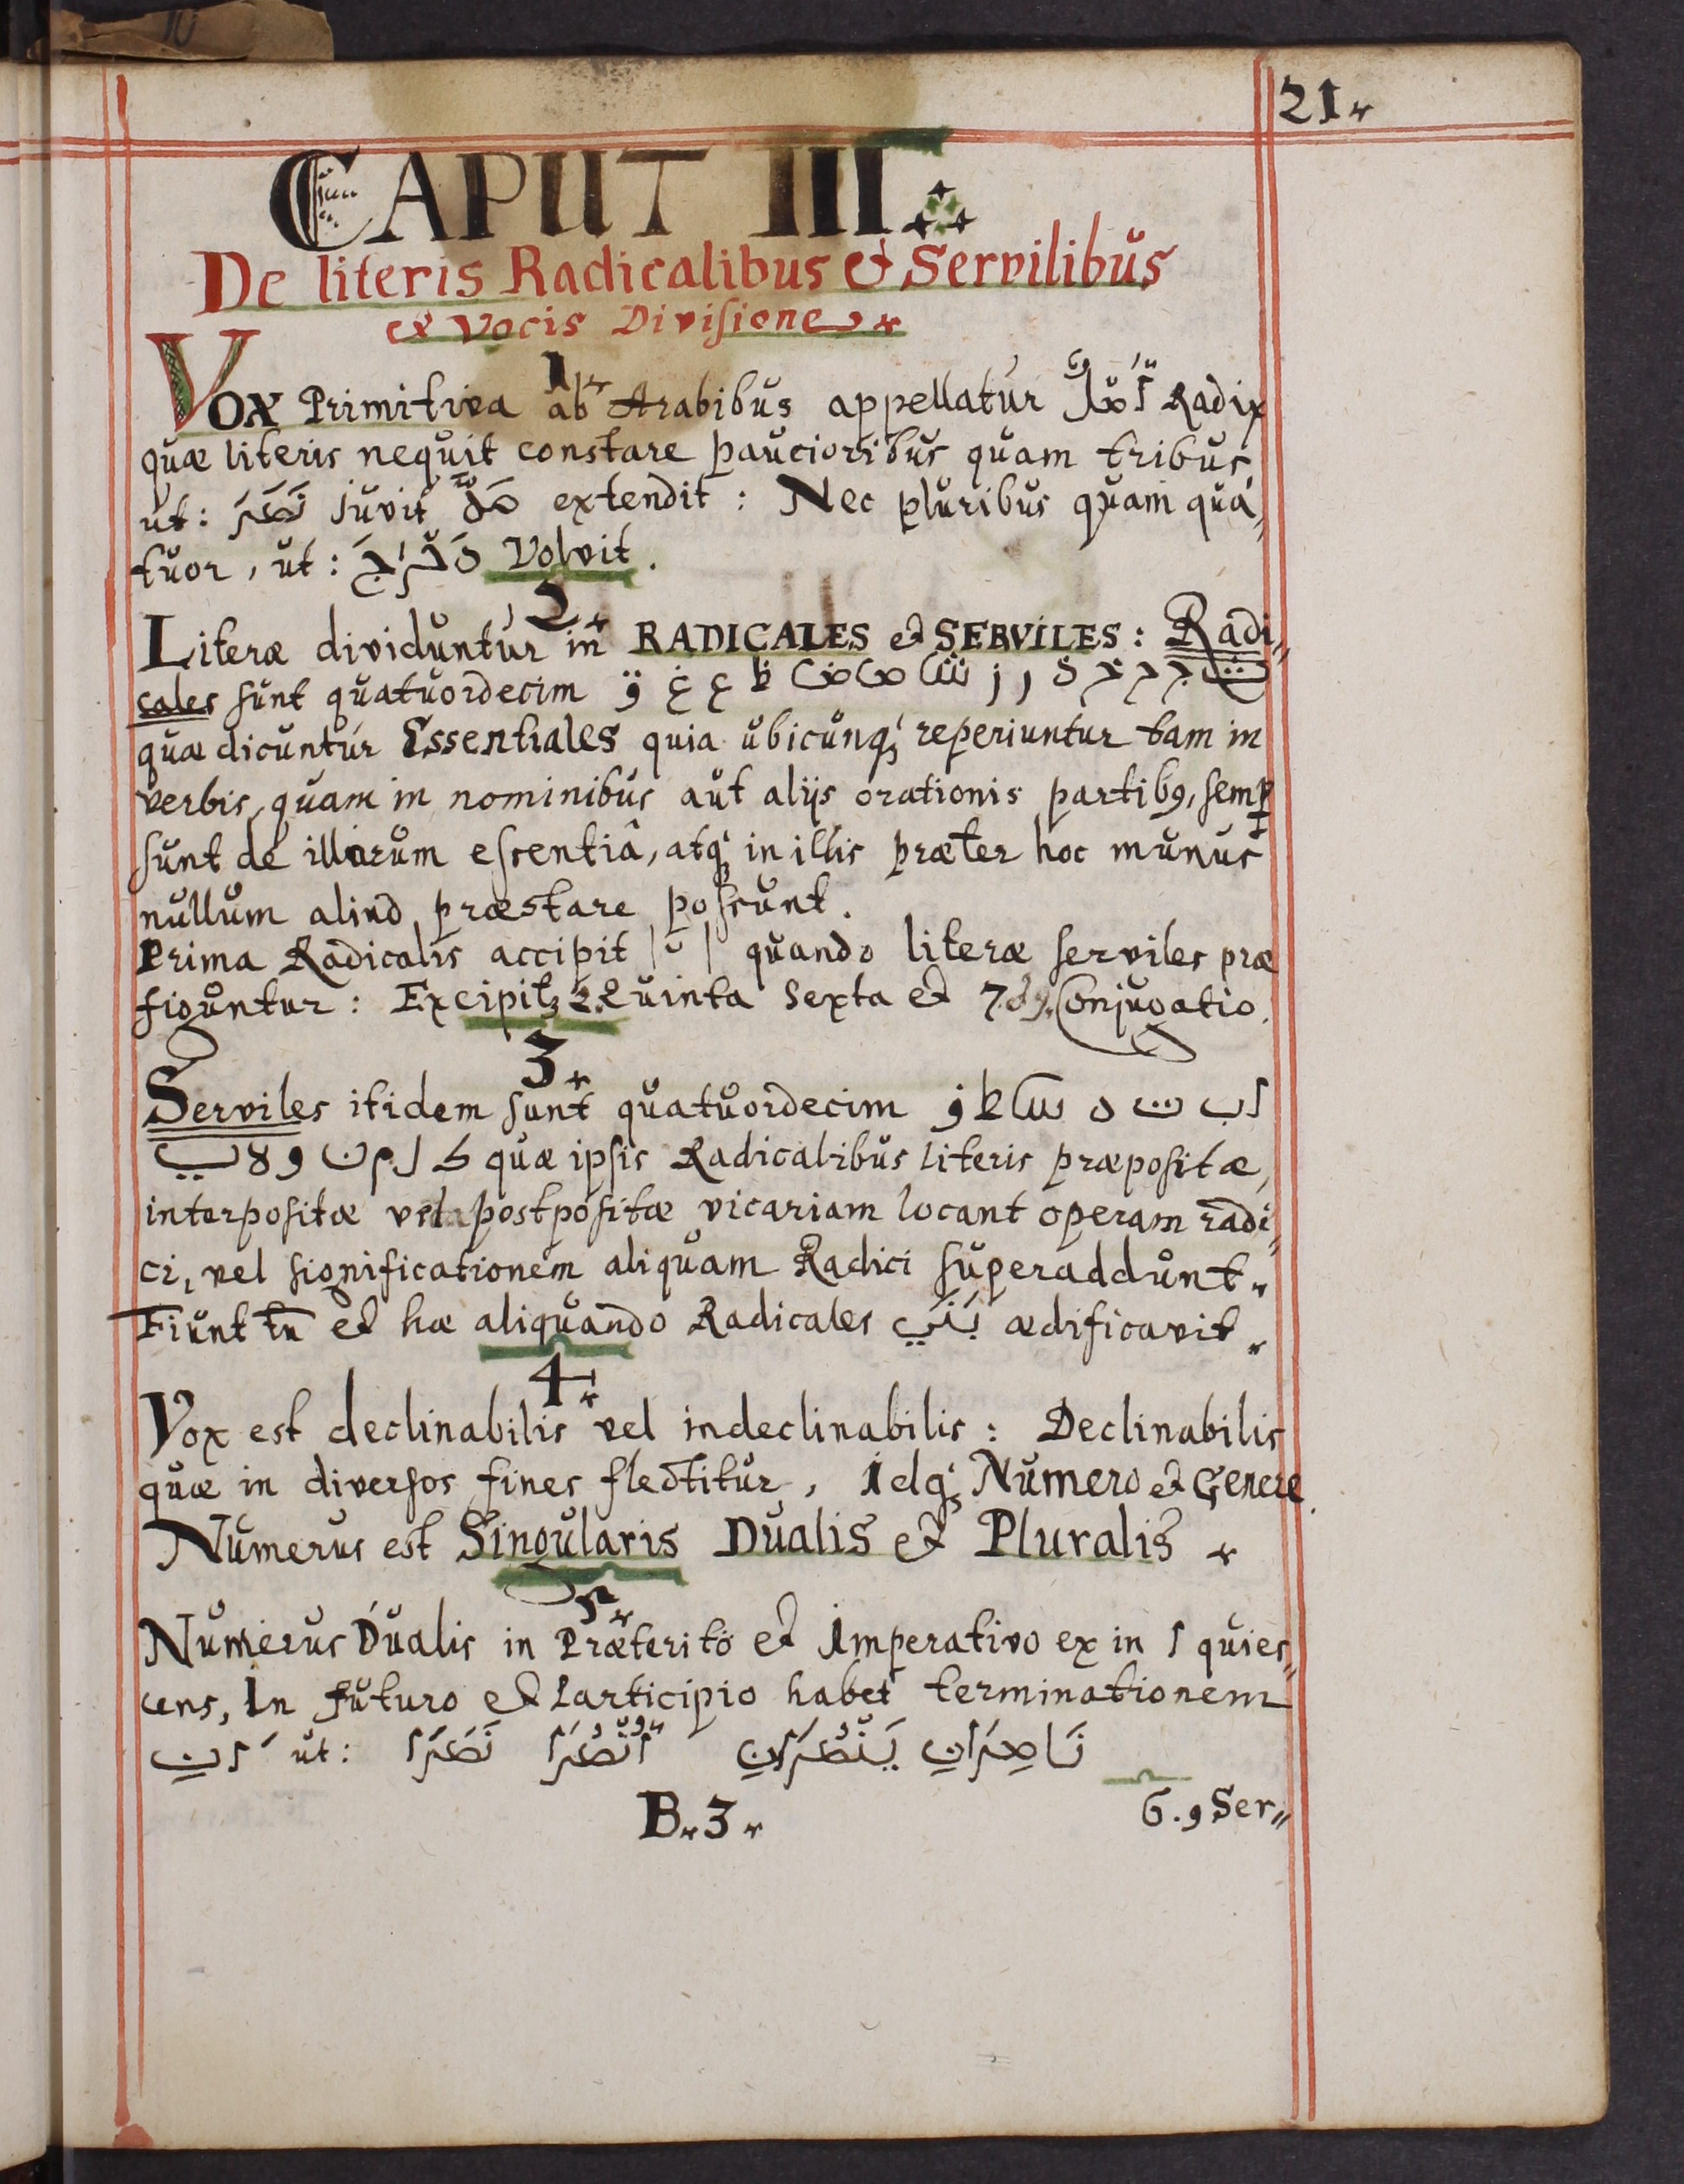 21.
CAPUT III.
De literis Radicalibus et Servilibus
et Vocis Divisione.
1.
VOX Primitiva ab Arabibus appellatur أَصْلٌ Radix
quæ literis nequit constare paucioribus quam tribus
ut: نَصَرَ juvit مَدَّ extendit: Nec pluribus quam qua,,
tuor, ut: دَحْرَجَ Volvit.
2.
Literæ dividuntur in RADICALES et SERVILES: Radi,,
cales sunt quatuordecim ث ج ح خ ذ ر ز ش ص ض ظ ع غ ق
quæ dicuntur Essentiales quia ubicunq; reperiuntur tam in
verbis, quam in nominibus aut aliis orationis partib9, semp
sunt de illorum essentiâ, atq; in illis præter hoc munus
nullum aliud præstare possunt.
Prima Radicalis accipit | ْ | quando literæ serviles præ
figuntur: Excipit 2. Quinta Sexta et 7. Conjugatio.
3.
Serviles itidem sunt quatuordecim ا ب ت د س ط ف
ك ل م ن و ه ي quæ ipsis Radicalibus literis præpositæ,
interpositæ vel postpositæ vicariam locant operam radi,,
ci, vel significationem aliquam Radici superaddunt.
Fiunt tn et hæ aliquando Radicales بَنَي ædificavit.
4.
Vox est declinabilis vel indeclinabilis: Declinabilis
quæ in diversos fines flectitur, idq; Numero et Genere.
Numerus est Singularis Dualis et Pluralis.
5.
Numerus Dualis in Præterito et Imperativo ex in ا quies,,
cens, In futuro et Participio habet terminationem
َانِ ut: نَصَرَا أُنْصُرَا يَنْصُرَانِ نَاصِرَانِ
B.3.
6. Ser,,